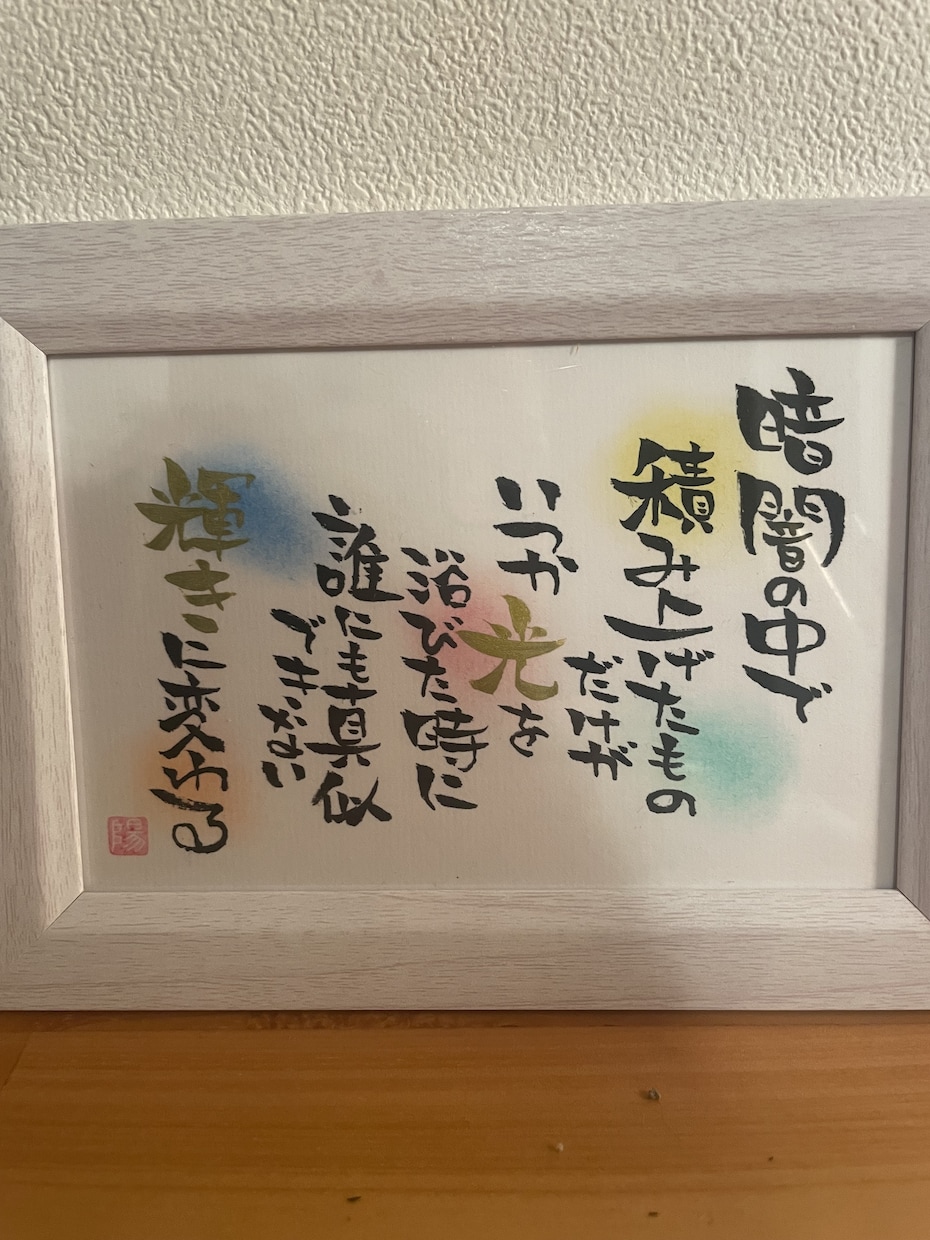 暗闇の中で
積み上げたもの
だけが
いつか光を
浴びた時に
誰にも真似
できない
輝きに変わる
陽